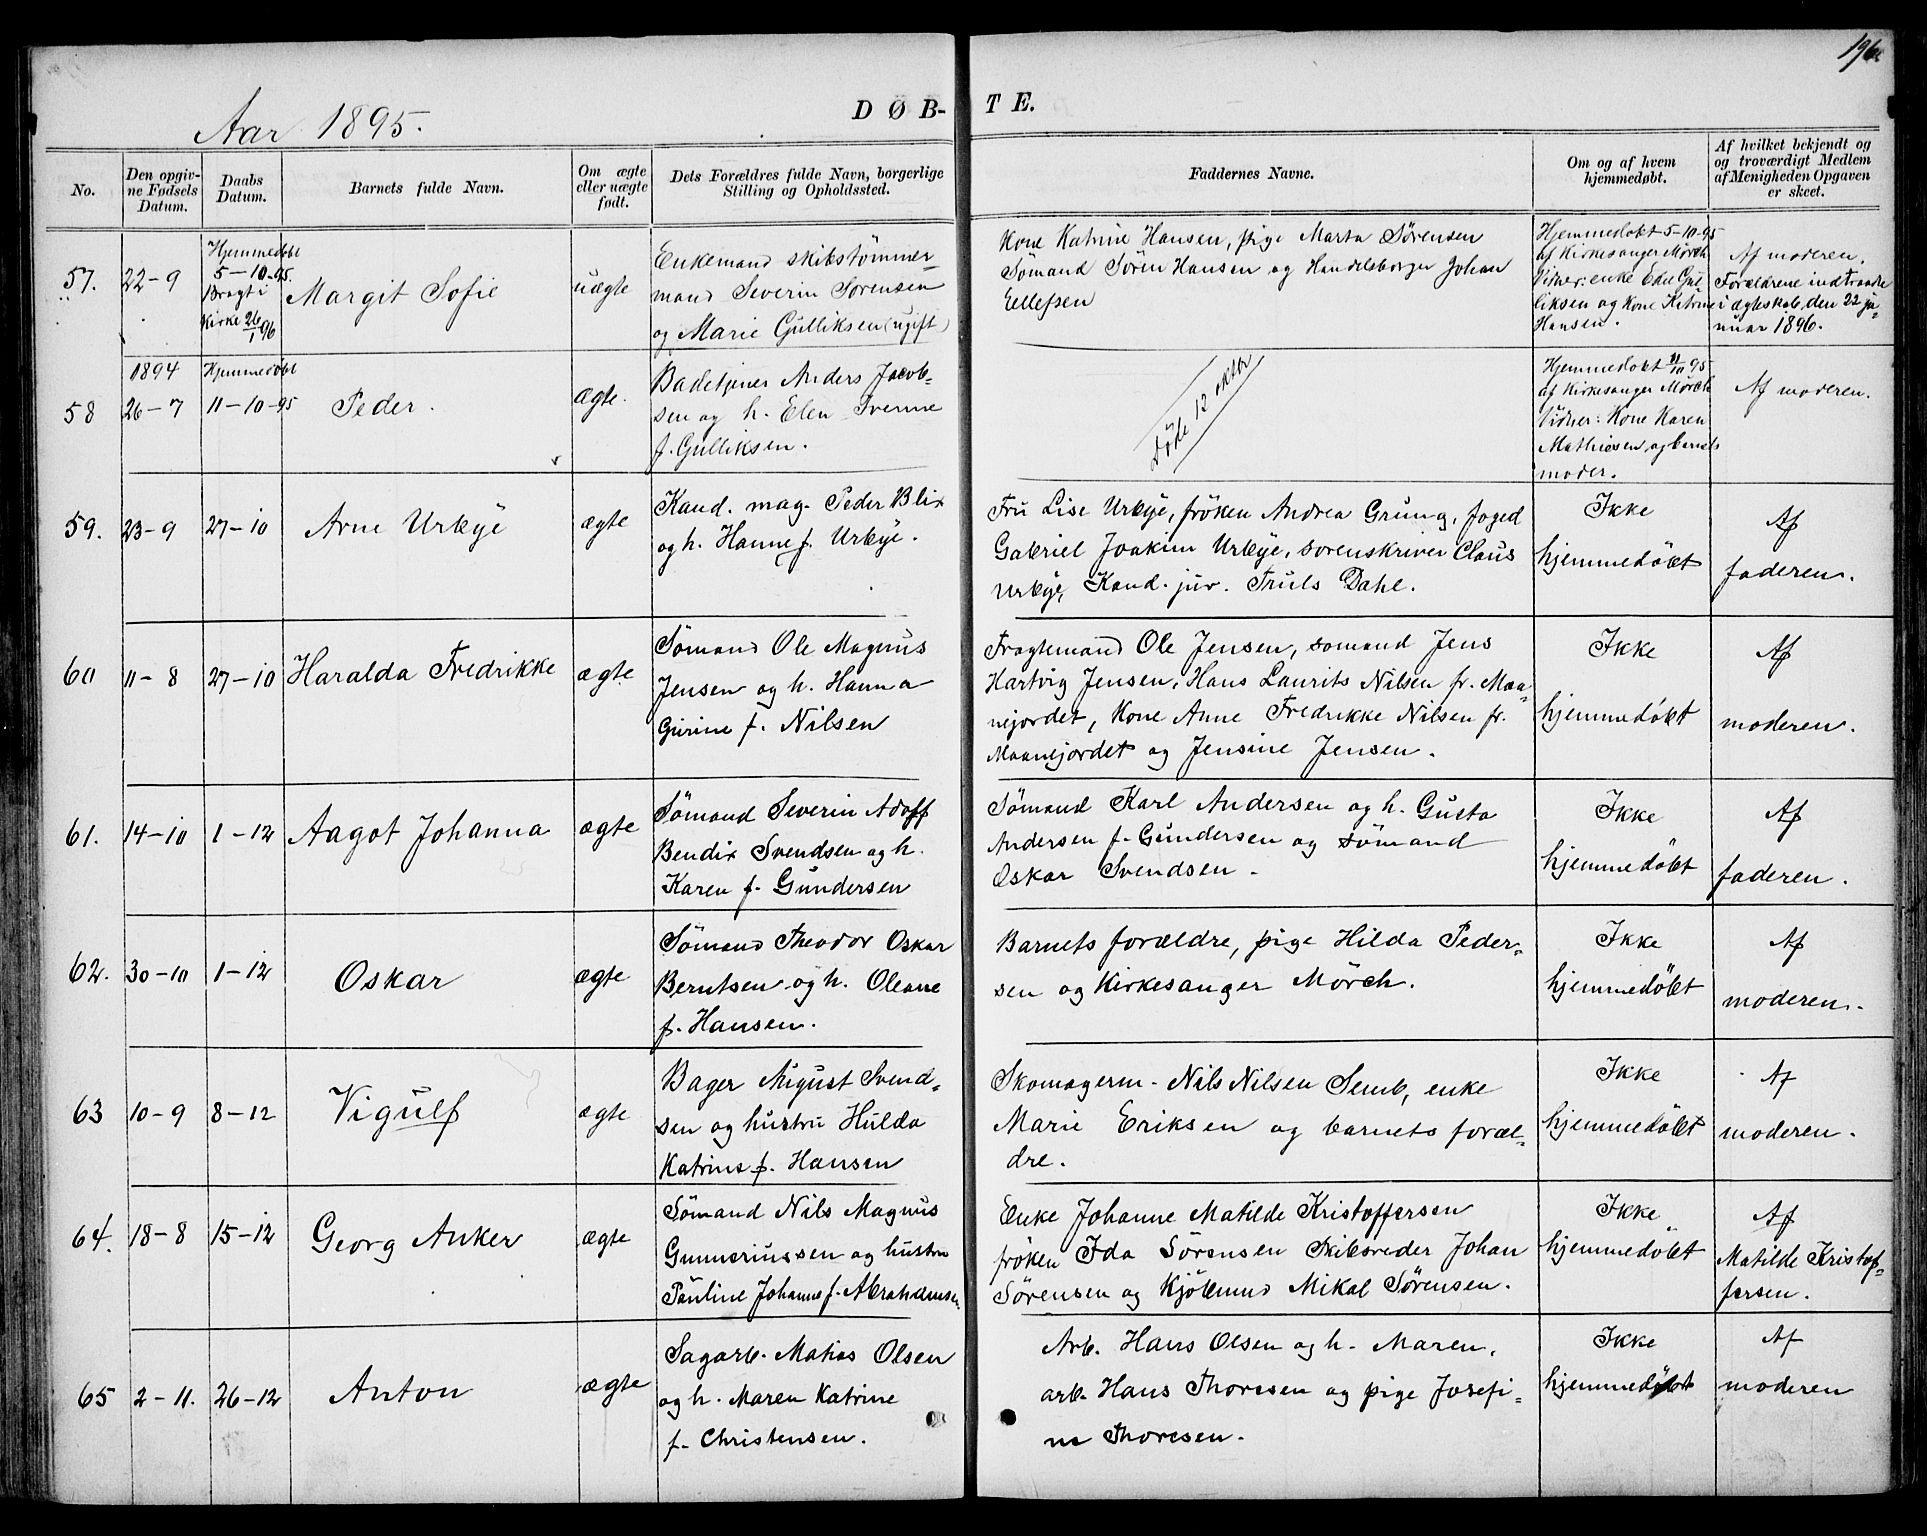 196
Aar 1895.
DØB-
TE.
No.
Den opgiv-
ne Fødsels
Datum.
Daabs
Datum.
Barnets fulde Navn.
Om ægte
eller uægte
født.
Dets Forældres fulde Navn, borgerlige
Stilling og Opholdssted.
Faddernes Navne.
Om og af hvem
hjemmedøbt.
Af hvilket bekjendt og
og troværdigt Medlem
af Menigheden Opgaven
er skeet.
57.
22-9
Hjemmedøbt
5-10-95.
Bragt i
Kirke 26/1 96
Margit Sofie
uægte
Enkemand skibstømmer-
mand Severin Sørensen
og Marie Gulliksen (ugift)
Kone Katrine Hansen, pige Marta Sørensen
Sømand Søren Hansen og Handelsborger Johan
Ellefsen
Hjemmedøbt 5-10-95
af Kirkesanger Mørch
Vidner: enke Edle Gul-
liksen og Kone Katrine
Hansen.
Af moderen.
Forældrene indtraadte
i ægteskab den 22 ja-
nuar 1896.
58
1894
26-7
Hjemmedøbt
11-10-95
Peder.
ægte.
Badetjener Anders Jacob-
sen og h. Elen
f. Gulliksen.
Døde 12 oktbr
Hjemmedøbt 11/10 95
af Kirkesanger Mørch
Vidner: Kone Karen
Mathiesen og barnets
moder.
Af moderen.
59.
23-9
27-10
Arne Urbye
ægte
Kand. mag. Peder Blix
og h. Hanne f. Urbye.
Fru Lise Urbye, frøken Andrea Grung, foged
Gabriel Joakim Urbye, sorenskriver Claus
Urbye, Kand. jur. Truls Dahl.
Ikke
hjemmedøbt
Af
faderen.
60
11-8
27-10
Haralda Fredrikke
ægte
Sømand Ole Magnus
Jensen og h. Hanna
Gurine f. Nilsen
Fragtemand Ole Jensen, sømand Jens
Hartvig Jensen, Hans Laurits Nilsen fr. Maa-
nejordet, Kone Anne Fredrikke Nilsen fr.
Maanejordet og Jensine Jensen.
Ikke
hjemmedøbt
Af
moderen.
61.
14-10
1-12
Aagot Johanna
ægte
Sømand Severin Adolf
Bendix Svendsen og h.
Karen f. Gundersen
Sømand Karl Andersen og h. Gusta
Andersen f. Gundersen og sømand
Oskar Svendsen.
Ikke
hjemmedøbt
Af
faderen.
62.
30-10
1-12
Oskar
ægte
Sømand Theodor Oskar
Berntsen og h. Oleane
f. Hansen.
Barnets forældre, pige Hilda Peder-
sen og Kirkesanger Mørch.
Ikke
hjemmedøbt
Af
moderen.
63
10-9
8-12
Vigulf
ægte
Bager August Svend-
sen og hustru Hulda
Katrine f. Hansen
Skomagerm. Nils Nilsen Semb, enke
Marie Eriksen og barnets foræl-
dre.
Ikke
hjemmedøbt
Af
moderen.
64.
18-8
15-12
Georg Anker
ægte
Sømand Nils Magnus
Gunneriussen og hustru
Pauline Johanne f. Abrahamsen
Enke Johanne Matilde Kristoffersen
frøken Ida Sørensen Skibsreder Johan
Sørensen og Kjøbmand Mikal Sørensen.
Ikke
hjemmedøbt
Af
Matilde Kristof-
fersen.
65
2-11.
26-12
Anton
ægte
Sagarb. Matias Olsen
og h. Maren Katrine
f. Christensen.
Arb. Hans Olsen og h. Maren,
arb. Hans Thoresen og pige Josefi-
ne Thoresen.
Ikke
hjemmedøbt
Af
moderen